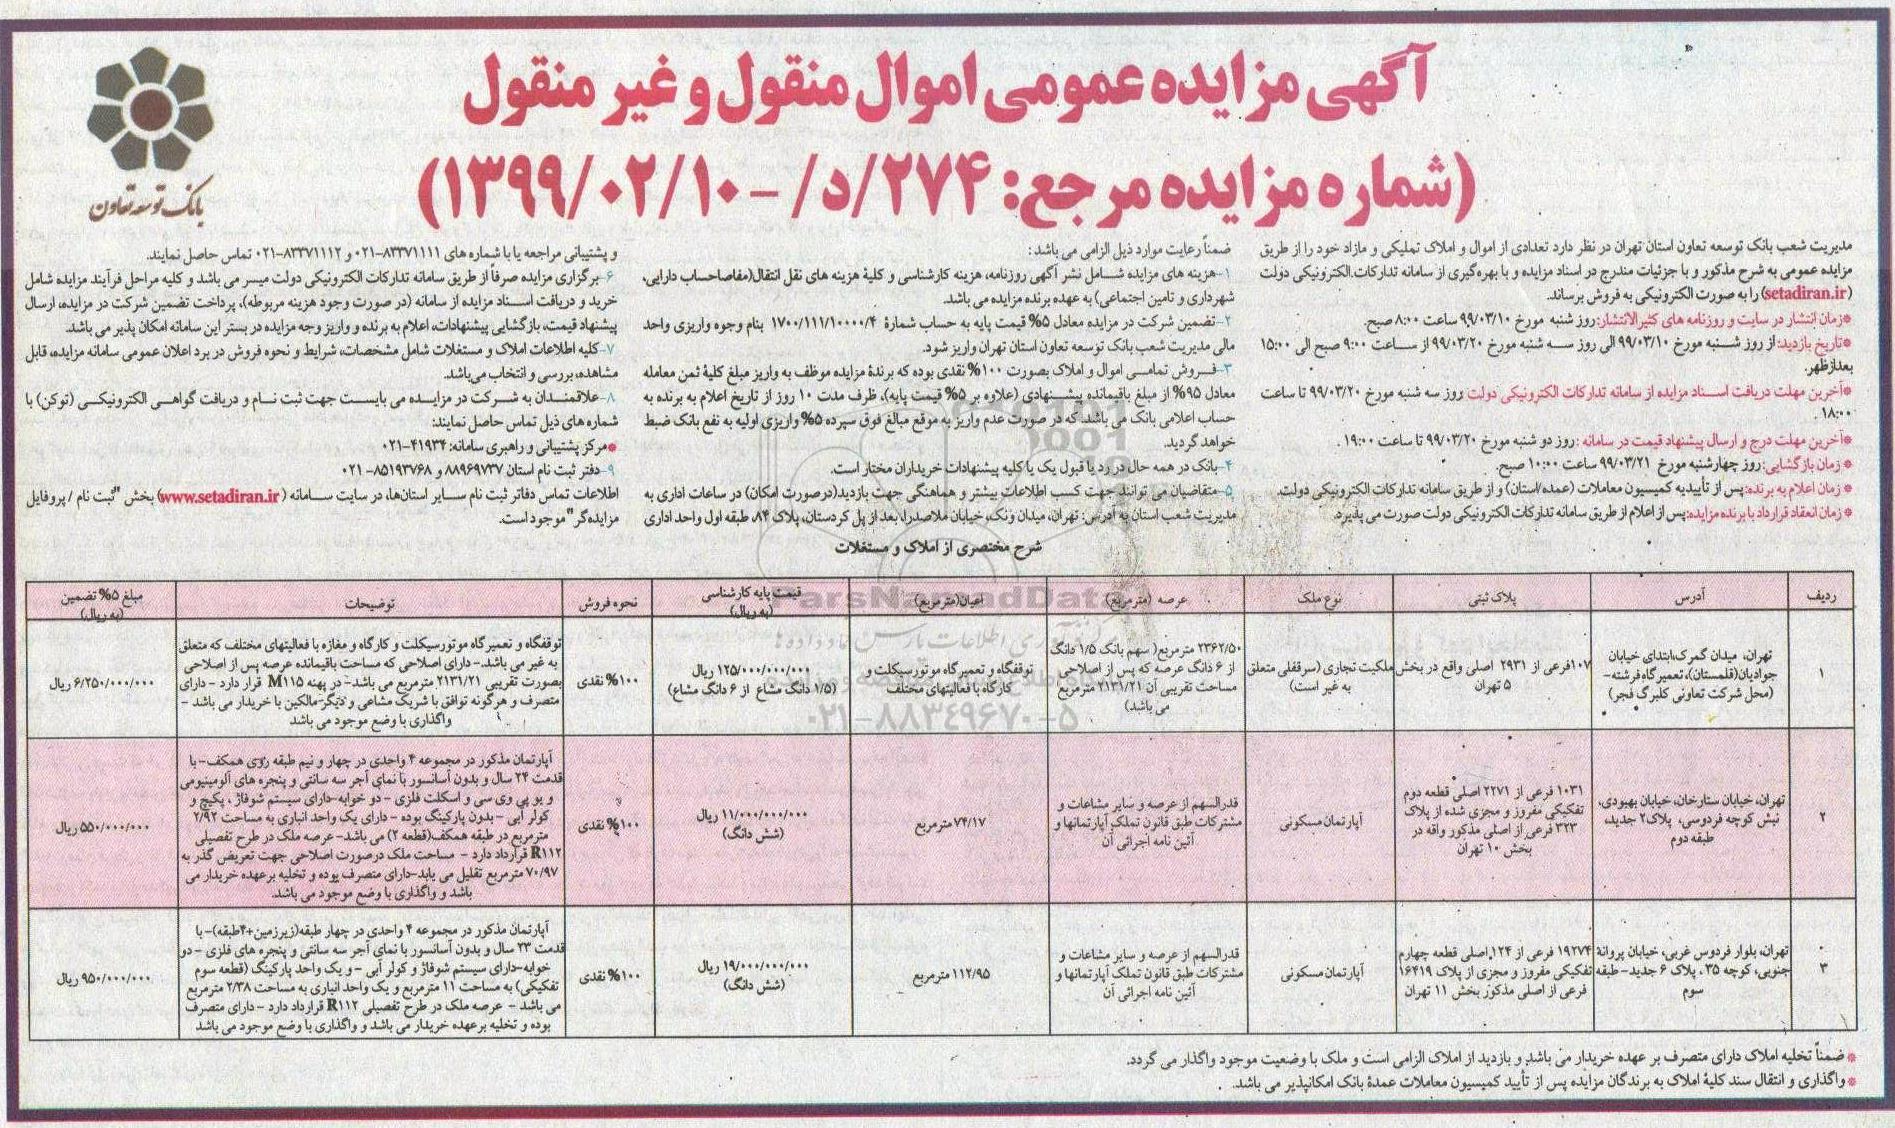 آگهی مزایده عمومی اموال منقول و غیر منقول
(شماره مزایده مرجع: ۲۷۴/د/- ۱۳۹۹/۰۲/۱۰)
بانک توسعه تعاون
مدیریت شعب بانک توسعه تعاون استان تهران در نظر دارد تعدادی از اموال و املاک تملیکی و مازاد خود را از طریق
مزایده عمومی به شرح مذکور و با جزئیات مندرج در اسناد مزایده و با بهره‌گیری از سامانه تدارکات الکترونیکی دولت
(setadiran.ir) را به صورت الکترونیکی به فروش برساند.
*زمان انتشار در سایت و روزنامه های کثیرالانتشار: روز شنبه مورخ ۹۹/۰۳/۱۰ ساعت ۸:۰۰ صبح.
*تاریخ بازدید: از روز شنبه مورخ ۹۹/۰۳/۱۰ الی روز سه شنبه مورخ ۹۹/۰۳/۲۰ از ساعت ۹:۰۰ صبح الی ۱۵:۰۰
بعدازظهر.
*آخرین مهلت دریافت اسناد مزایده از سامانه تدارکات الکترونیکی دولت روز سه شنبه مورخ ۹۹/۰۳/۲۰ تا ساعت
۱۸:۰۰ .
*آخرین مهلت درج و ارسال پیشنهاد قیمت در سامانه : روز دو شنبه مورخ ۹۹/۰۳/۲۰ تا ساعت ۱۹:۰۰ .
* زمان بازگشایی: روز چهارشنبه مورخ ۹۹/۰۳/۲۱ ساعت ۱۰:۰۰ صبح.
* زمان اعلام به برنده: پس از تأییدیه کمیسیون معاملات (عمده/استان) و از طریق سامانه تدارکات الکترونیکی دولت.
* زمان انعقاد قرارداد با برنده مزایده: پس از اعلام از طریق سامانه تدارکات الکترونیکی دولت صورت می پذیرد.
ضمناً رعایت موارد ذیل الزامی می باشد :
۱-هزینه های مزایده شامل نشر آگهی روزنامه، هزینه کارشناسی و کلیۀ هزینه های نقل انتقال(مفاصاحساب دارایی،
شهرداری و تامین اجتماعی) به عهده برنده مزایده می باشد.
۲-تضمین شرکت در مزایده معادل ۵% قیمت پایه به حساب شمارۀ ۱۷۰۰/۱۱۱/۱۰۰۰۰/۴ بنام وجوه واریزی واحد
مالی مدیریت شعب بانک توسعه تعاون استان تهران واریز شود.
۳-فروش تمامی اموال و املاک بصورت ۱۰۰% نقدی بوده که برندۀ مزایده موظف به واریز مبلغ کلیۀ ثمن معامله
معادل ۹۵% از مبلغ باقیمانده پیشنهادی (علاوه بر ۵% قیمت پایه)، ظرف مدت ۱۰ روز از تاریخ اعلام به برنده به
حساب اعلامی بانک می باشد. که در صورت عدم واریز به موقع مبالغ فوق سپرده ۵% واریزی اولیه به نفع بانک ضبط
خواهد گردید.
۴-بانک در همه حال در رد یا قبول یک یا کلیه پیشنهادات خریداران مختار است.
۵-متقاضیان می توانند جهت کسب اطلاعات بیشتر و هماهنگی جهت بازدید(درصورت امکان) در ساعات اداری به
مدیریت شعب استان به آدرس: تهران، میدان ونک، خیابان ملاصدرا، بعد از پل کردستان، پلاک ۸۴، طبقه اول واحد اداری
و پشتیبانی مراجعه یا با شماره های ۸۳۳۷۱۱۱۱-۰۲۱ و ۸۳۳۷۱۱۱۲-۰۲۱ تماس حاصل نمایند.
۶-برگزاری مزایده صرفاً از طریق سامانه تدارکات الکترونیکی دولت میسر می باشد و کلیه مراحل فرآیند مزایده شامل
خرید و دریافت اسناد مزایده از سامانه (در صورت وجود هزینه مربوطه)، پرداخت تضمین شرکت در مزایده، ارسال
پیشنهاد قیمت، بازگشایی پیشنهادات، اعلام به برنده و واریز وجه مزایده در بستر این سامانه امکان پذیر می باشد.
۷-کلیه اطلاعات املاک و مستغلات شامل مشخصات، شرایط و نحوه فروش در برد اعلان عمومی سامانه مزایده، قابل
مشاهده، بررسی و انتخاب می‌باشد.
۸-علاقمندان به شرکت در مزایده می بایست جهت ثبت نام و دریافت گواهی الکترونیکی (توکن) با
شماره های ذیل تماس حاصل نمایند:
*مرکز پشتیبانی و راهبری سامانه: ۴۱۹۳۴-۰۲۱
۹-دفتر ثبت نام استان ۸۸۹۶۹۷۳۷ و ۸۵۱۹۳۷۶۸- ۰۲۱
اطلاعات تماس دفاتر ثبت نام سایر استان‌ها، در سایت سامانه (www.setadiran.ir) بخش "ثبت نام / پروفایل
مزایده‌گر" موجود است.
شرح مختصری از املاک و مستغلات
ردیف آدرس پلاک ثبتی نوع ملک عرصه (مترمربع) اعیان(مترمربع) قیمت پایه کارشناسی (به ریال) نحوه فروش توضیحات مبلغ ۵% تضمین (به ریال)
۱
تهران، میدان گمرک،ابتدای خیابان
جوادیان(قلمستان)، تعمیرگاه فرشته-
(محل شرکت تعاونی گلبرگ فجر)
۱۰۷فرعی از ۲۹۳۱ اصلی واقع در بخش
۵ تهران
ملکیت تجاری (سرقفلی متعلق
به غیر است)
۲۳۶۲/۵۰ مترمربع( سهم بانک ۱/۵ دانگ
از ۶ دانگ عرصه که پس از اصلاحی
مساحت تقریبی آن ۲۱۳۱/۲۱ مترمربع
می باشد)
توقفگاه و تعمیرگاه موتورسیکلت و
کارگاه با فعالیتهای مختلف
۱۲۵/۰۰۰/۰۰۰/۰۰۰ ریال
(۱/۵ دانگ مشاع از ۶ دانگ مشاع)
۱۰۰% نقدی
توقفگاه و تعمیرگاه موتورسیکلت و کارگاه و مغازه با فعالیتهای مختلف که متعلق
به غیر می باشد.- دارای اصلاحی که مساحت باقیمانده عرصه پس از اصلاحی
بصورت تقریبی ۲۱۳۱/۲۱ مترمربع می باشد- در پهنه M۱۱۵ قرار دارد - دارای
متصرف و هرگونه توافق با شریک مشاعی و دیگر مالکین با خریدار می باشد -
واگذاری با وضع موجود می باشد
۶/۲۵۰/۰۰۰/۰۰۰ ریال
۲
تهران، خیابان ستارخان، خیابان بهبودی،
نبش کوچه فردوسی، پلاک۲ جدید،
طبقه دوم
۱۰۳۱ فرعی از ۲۲۷۱ اصلی قطعه دوم
تفکیکی مفروز و مجزی شده از پلاک
۳۲۳ فرعی از اصلی مذکور واقه در
بخش ۱۰ تهران
آپارتمان مسکونی
قدرالسهم از عرصه و سایر مشاعات و
مشترکات طبق قانون تملک آپارتمانها و
آئین نامه اجرائی آن
۷۴/۱۷مترمربع
۱۱/۰۰۰/۰۰۰/۰۰۰ ریال
(شش دانگ)
۱۰۰% نقدی
آپارتمان مذکور در مجموعه ۴ واحدی در چهار و نیم طبقه روی همکف- با
قدمت ۲۴ سال و بدون آسانسور با نمای آجر سه سانتی و پنجره های آلومینیومی
و یو پی وی سی و اسکلت فلزی - دو خوابه-دارای سیستم شوفاژ ، پکیج و
کولر آبی - بدون پارکینگ بوده - دارای یک واحد انباری به مساحت ۲/۹۲
مترمربع در طبقه همکف(قطعه ۲) می باشد- عرصه ملک در طرح تفصیلی
R۱۱۲ قرارداد دارد - مساحت ملک درصورت اصلاحی جهت تعریض گذر به
۷۰/۹۷ مترمربع تقلیل می یابد-دارای متصرف بوده و تخلیه برعهده خریدار می
باشد و واگذاری با وضع موجود می باشد.
۵۵۰/۰۰۰/۰۰۰ ریال
۳
تهران، بلوار فردوس غربی، خیابان پروانۀ
جنوبی، کوچه ۳۵ ، پلاک ۶ جدید- طبقه
سوم
۱۹۲۷۴ فرعی از ۱۲۴ اصلی قطعه چهارم
تفکیکی مفروز و مجزی از پلاک ۱۶۴۱۹
فرعی از اصلی مذکور بخش ۱۱ تهران
آپارتمان مسکونی
قدرالسهم از عرصه و سایر مشاعات و
مشترکات طبق قانون تملک آپارتمانها و
آئین نامه اجرائی آن
۱۱۲/۹۵ مترمربع
۱۹/۰۰۰/۰۰۰/۰۰۰ ریال
(شش دانگ)
۱۰۰% نقدی
آپارتمان مذکور در مجموعه ۴ واحدی در چهار طبقه(زیرزمین+۴طبقه)- با
قدمت ۲۳ سال و بدون آسانسور با نمای آجر سه سانتی و پنجره های فلزی - دو
خوابه-دارای سیستم شوفاژ و کولر آبی - و یک واحد پارکینگ (قطعه سوم
تفکیکی) به مساحت ۱۱ مترمربع و یک واحد انباری به مساحت ۲/۳۸ مترمربع
می باشد - عرصه ملک در طرح تفصیلی R۱۱۲ قرارداد دارد - دارای متصرف
بوده و تخلیه برعهده خریدار می باشد و واگذاری با وضع موجود می باشد
۹۵۰/۰۰۰/۰۰۰ ریال
* ضمناً تخلیه املاک دارای متصرف بر عهده خریدار می باشد و بازدید از املاک الزامی است و ملک با وضعیت موجود واگذار می گردد.
* واگذاری و انتقال سند کلیۀ املاک به برندگان مزایده پس از تأیید کمیسیون معاملات عمدۀ بانک امکانپذیر می باشد.
ParsNamadData
۰۲۱-۸۸۳۴۹۶۷۰-۵